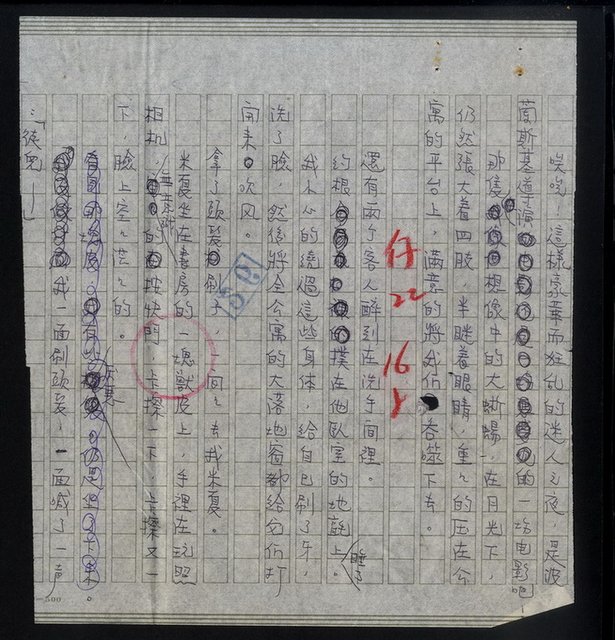 唉唉！這樣豪華而狂亂的迷人之夜，是波
蘭斯基導演的一場電影吧
那隻想像中的大蜥蜴，在月光下，
仍然張大着四肢，半瞇着眼睛，重重的压在公
寓的平台上，滿意的將我们吞噬下去。
還有兩个客人醉倒在洗手間裡。
约根撲在他臥室的地毯上
睡了
我小心的繞過這些身体，給自己刷了牙，
洗了臉，然後將全公寓的大落地窗都給它们打
開来吹风。
拿了頭髮刷子，一间々去找米夏。
米夏坐在書房的一塊獸皮上，手裡在玩照
相机，無意識的按快門，卡擦一下，卡擦又一
下，臉上空々茫々的。
我一面刷頭髮，一面喊了一声
「徒兒—」
仔
22
16
500